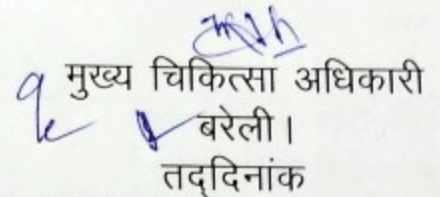 मुख्य चिकित्सा अधिकारी
बरेली।
तद्दिनांक